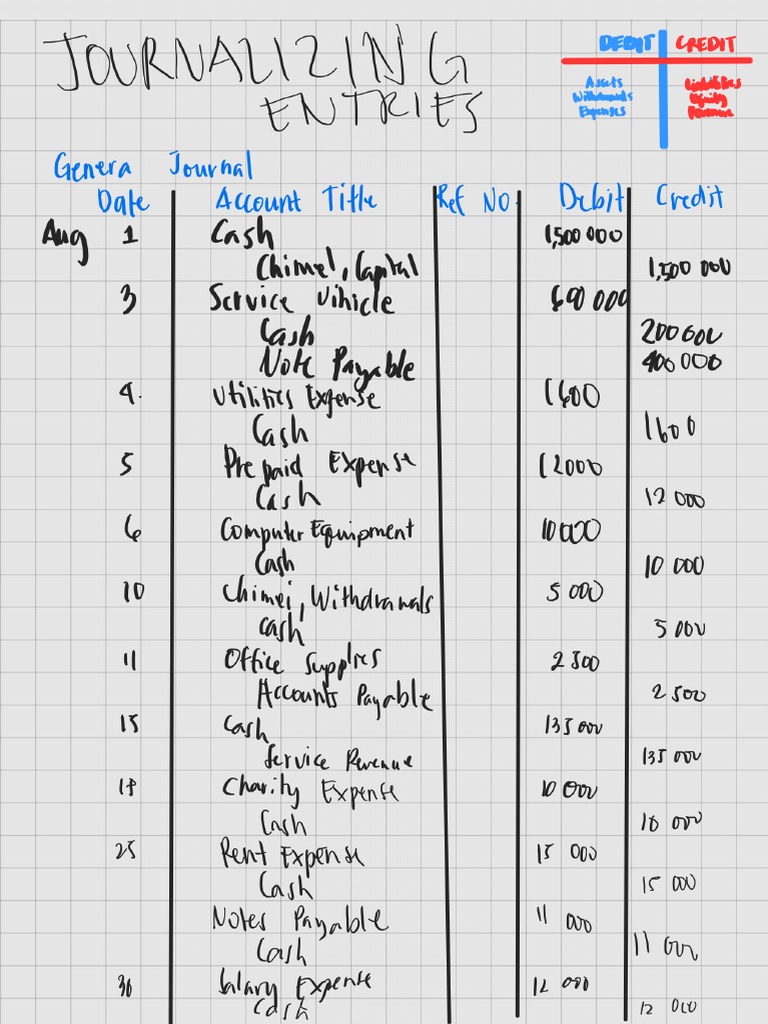 JOURNALIZING
ENTRIES
DEBIT CREDIT
Assets Liabilities
Withdrawals Equity
Expenses Revenue
Genera Journal
Date Account Title Ref No. Debit Credit
Aug 1 Cash 1,500 000
Chimel, Capital 1,500 000
3 Service Vihicle 600 000
Cash 200 000
Note Payable 400 000
4. Utilities Expense 1600
Cash 1600
5 Prepaid Expense 12000
Cash 12 000
6 Computer Equipment 10000
Cash 10 000
10 Chimei, Withdrawals 5 000
Cash 5 000
11 Office Supplies 2 500
Accounts Payable 2 500
15 Cash 135 000
Service Revenue 135 000
18 Charity Expense 10 000
Cash 10 000
25 Rent Expense 15 000
Cash 15 000
Notes Payable 11 000
Cash 11 000
30 Salary Expense 12 000
Cash 12 000